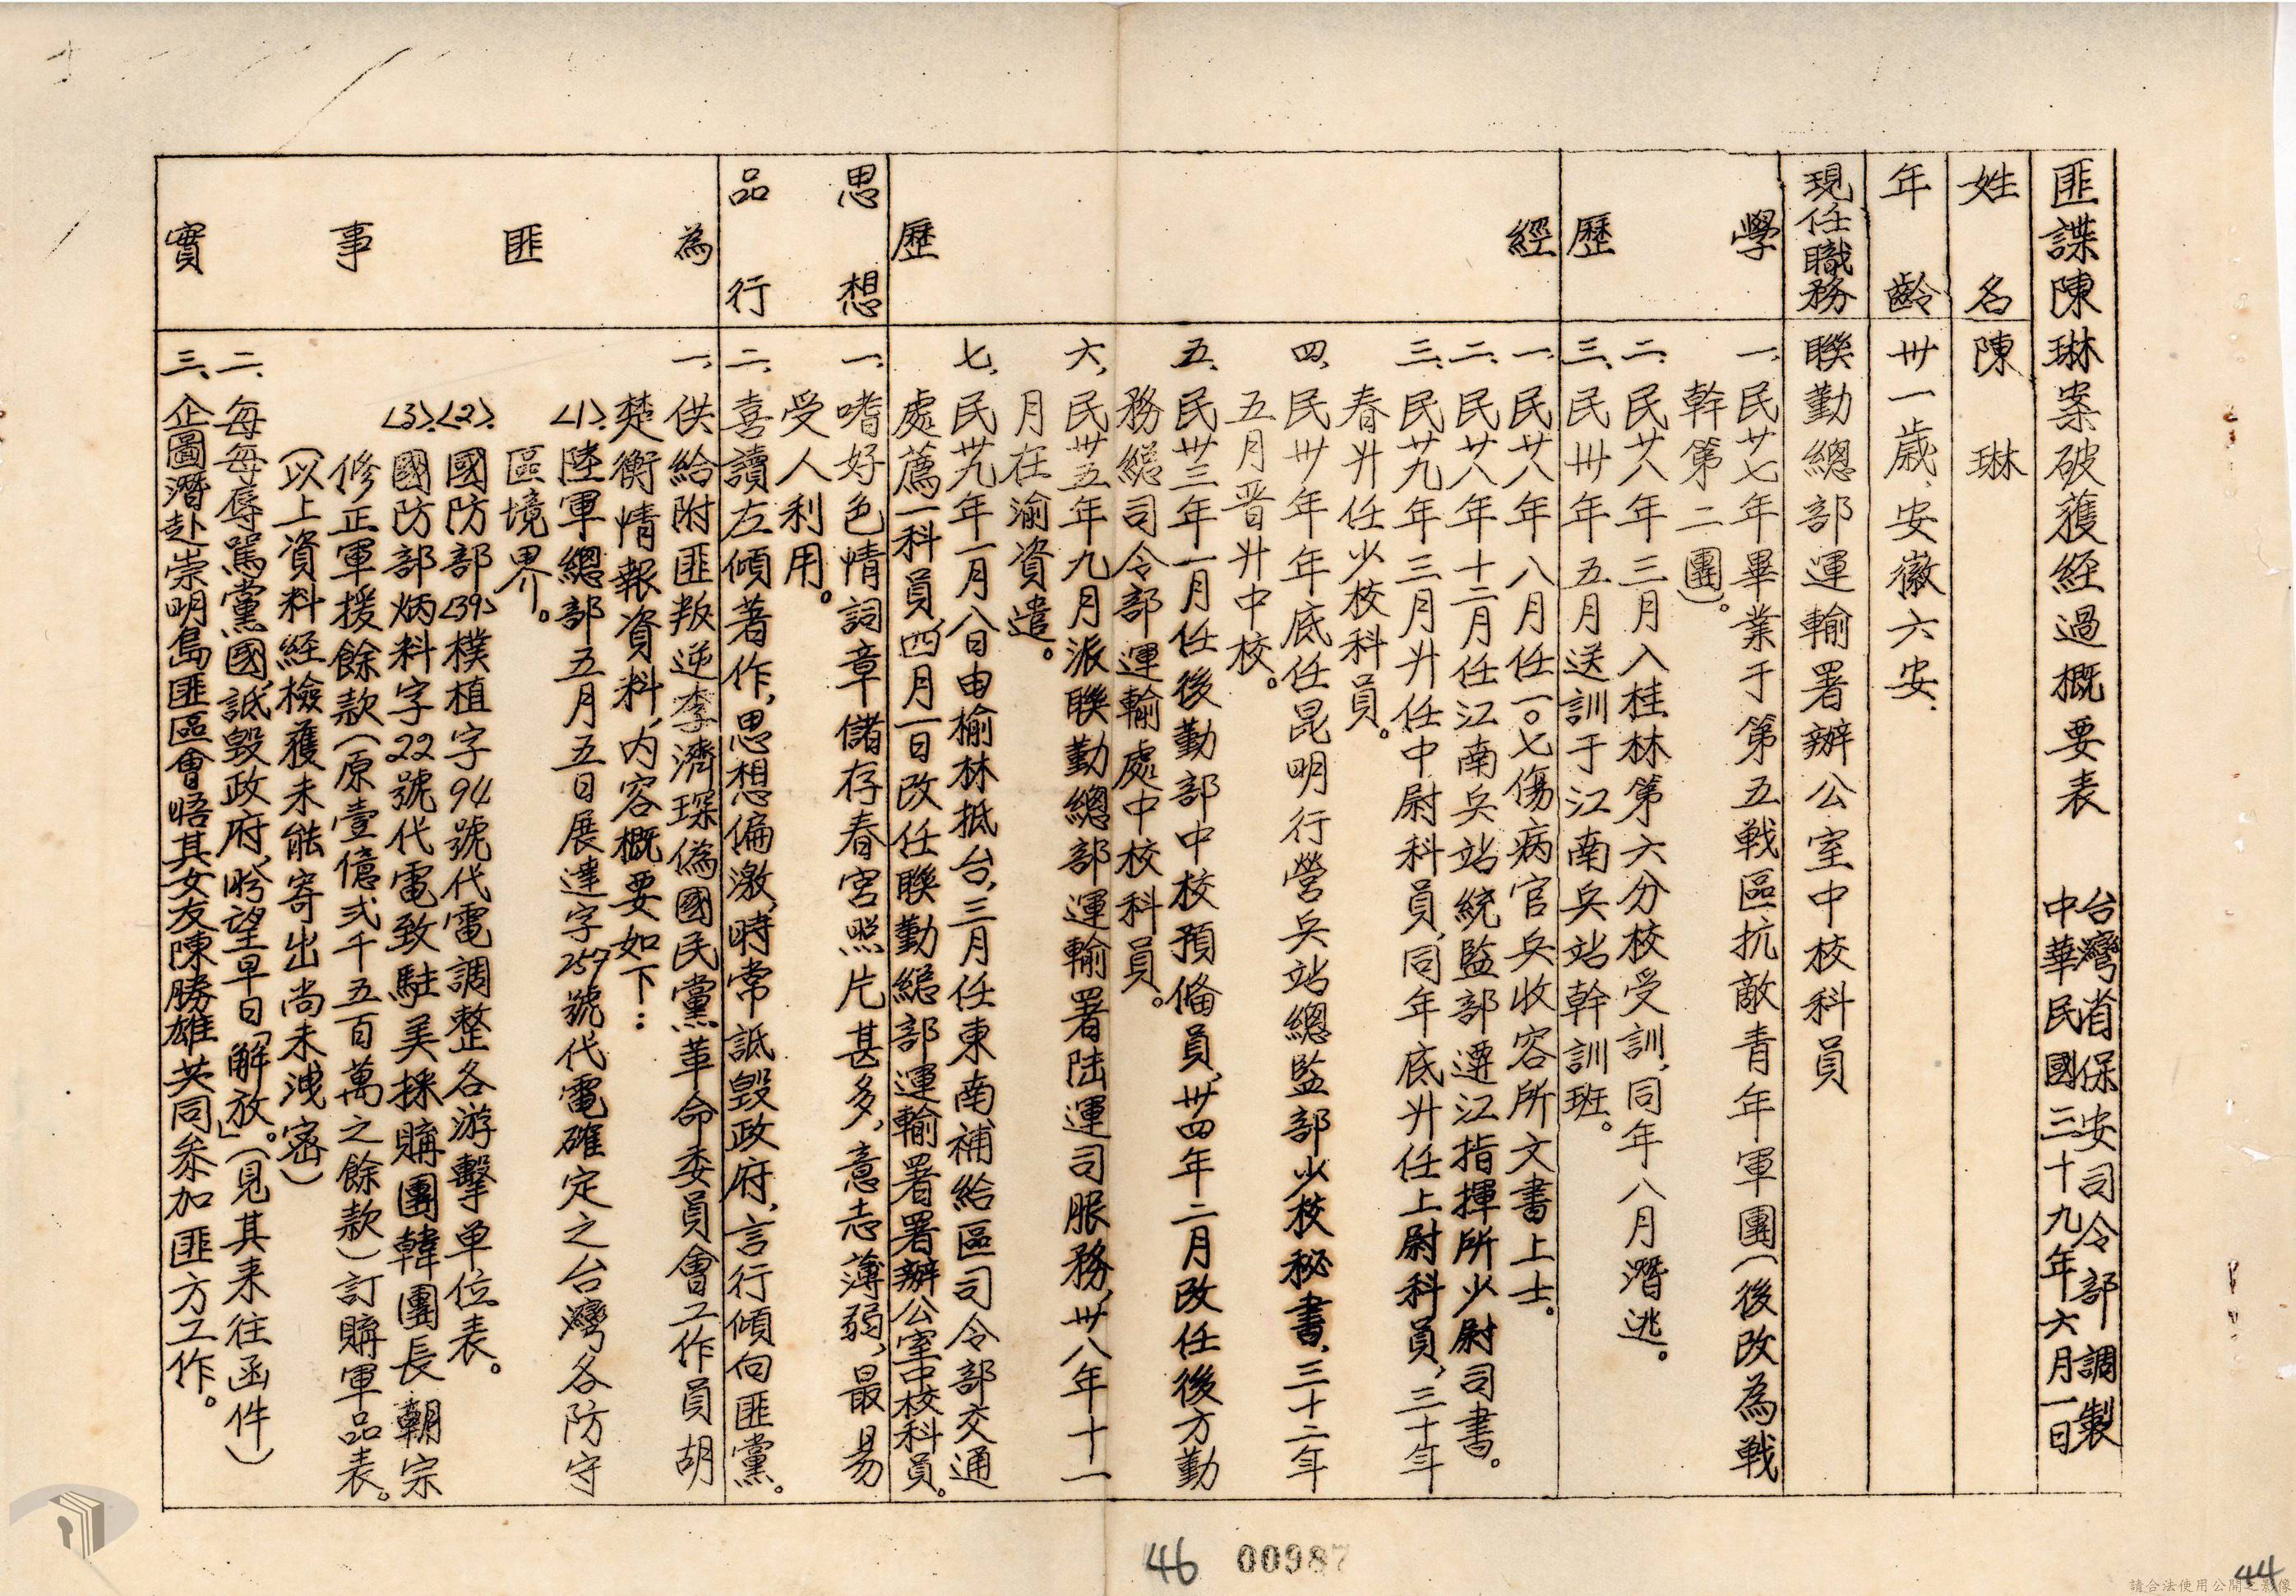 匪諜陳琳案破獲經過概要表
台灣省保安司令部調製
中華民國三十九年六月一日
姓名
陳琳
年齡
卅一歲、安徽六安.
現任職務
聯勤總部運輸署辦公室中校科員
學歷
一、民廿七年畢業于第五戰區抗敵青年軍團（後改為戰
幹第二團）。
二、民廿八年三月入桂林第六分校受訓，同年八月潛逃。
三、民卅年五月送訓于江南兵站幹訓班。
經歷
一、民廿八年八月任一〇七傷病官兵收容所文書上士。
二、民廿八年十二月任江南兵站統監部遷江指揮所少尉司書。
三、民廿九年三月升任中尉科員，同年底升任上尉科員，三十年
春升任少校科員。
四、民卅年年底任昆明行營兵站總監部少校秘書，三十二年
五月晋升中校。
五、民卅三年一月任後勤部中校預備員，卅四年二月改任後方勤
務總司令部運輸處中校科員。
六、民卅五年九月派聯勤總部運輸署陸運司服務，卅八年十一
月在渝資遣。
七、民卅九年一月八日由榆林抵台，三月任東南補給區司令部交通
處薦一科員，四月一日改任聯勤總部運輸署署辦公室中校科員。
思想品行
一、嗜好色情詞章儲存春宮照片甚多，意志薄弱，最易
受人利用。
二、喜讀左傾著作，思想偏激，時常詆毀政府，言行傾向匪黨。
為匪事實
一、供給附匪叛逆李濟琛偽國民黨革命委員會工作員胡
楚衡情報資料，内容概要如下：
<1>、陸軍總部五月五日展達字257號代電確定之台灣各防守
區境界。
<2>、國防部<39>樸植字94號代電調整各游擊单位表。
<3>、國防部炳料字22號代電致駐美採購團韓團長朝宗
修正軍援餘款（原壹億弍千五百萬之餘款）訂購軍品表。
（以上資料経檢獲未能寄出尚未洩密）
二、每每辱駡黨國，詆毀政府，盼望早日「解放」。（見其來往函件）
三、企圖潛赴崇明島匪區會晤其女友陳勝雄共同參加匪方工作。
46
00987
44
請合法使用公開之影像